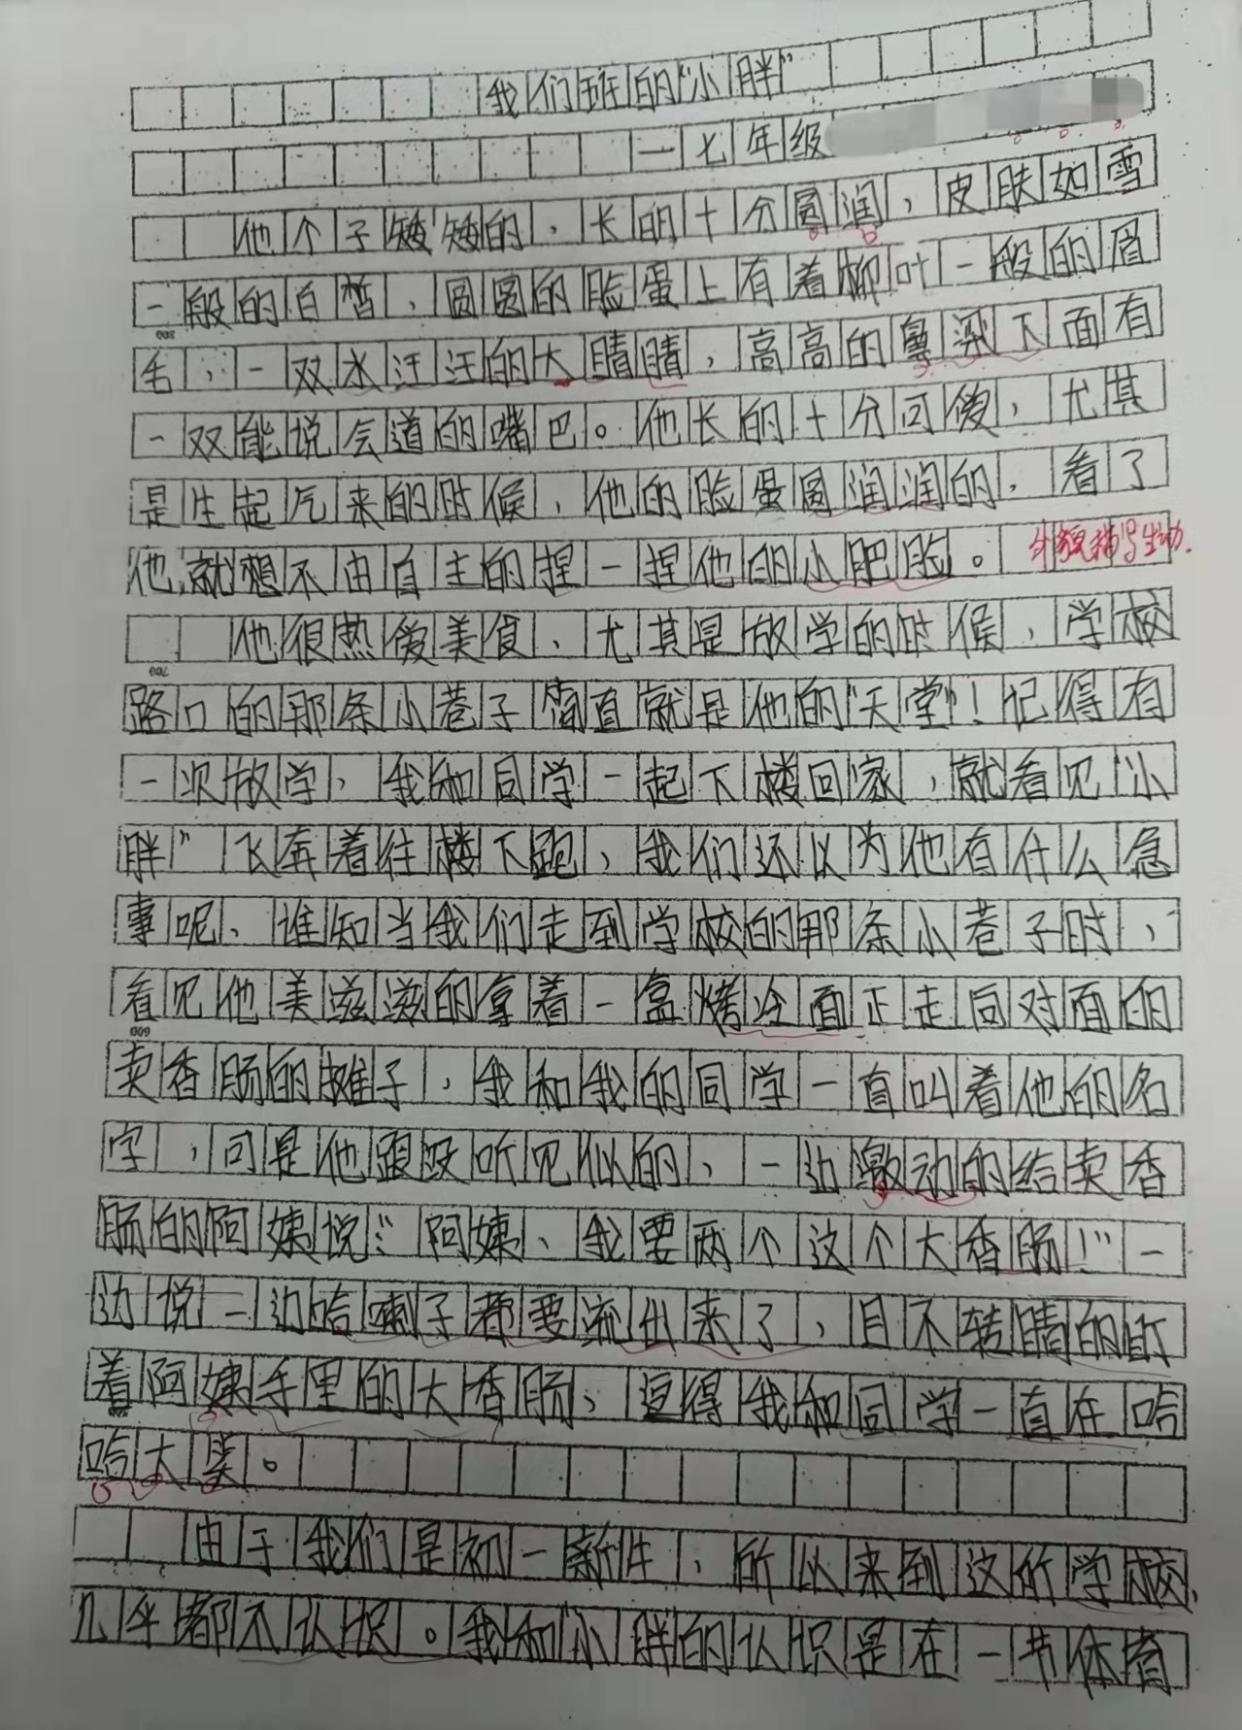 我们班的“小胖”
一七年级
他个子矮矮的，长的十分圆润，皮肤如雪
一般的白皙，圆圆的脸蛋上有着柳叶一般的眉
毛，一双水汪汪的大睛睛，高高的鼻梁下面有
一双能说会道的嘴巴。他长的十分可傻，尤其
是生起气来的时候，他的脸蛋圆润润的，看了
他，就想不由自主的捏一捏他的小肥脸。
外貌描写生动.
他很热爱美食，尤其是放学的时候，学校
路口的那条小巷子简直就是他的“天堂”！记得有
一次放学，我和同学一起下楼回家，就看见“小
胖”飞奔着往楼下跑，我们还以为他有什么急
事呢、谁知当我们走到学校的那条小巷子时，
看见他美滋滋的拿着一盒烤冷面正走向对面的
卖香肠的摊子，我和我的同学一直叫着他的名
字，可是他跟没听见似的，一边激动的给卖香
肠的阿姨说：“阿姨、我要两个这个大香肠！”一
边说一边哈喇子都要流出来了，目不转睛的盯
着阿姨手里的大香肠，逗得我和同学一直在哈
哈大笑。
由于我们是初一新生，所以来到这所学校，
几乎都不认识。我和“小胖的认识是在一节体育